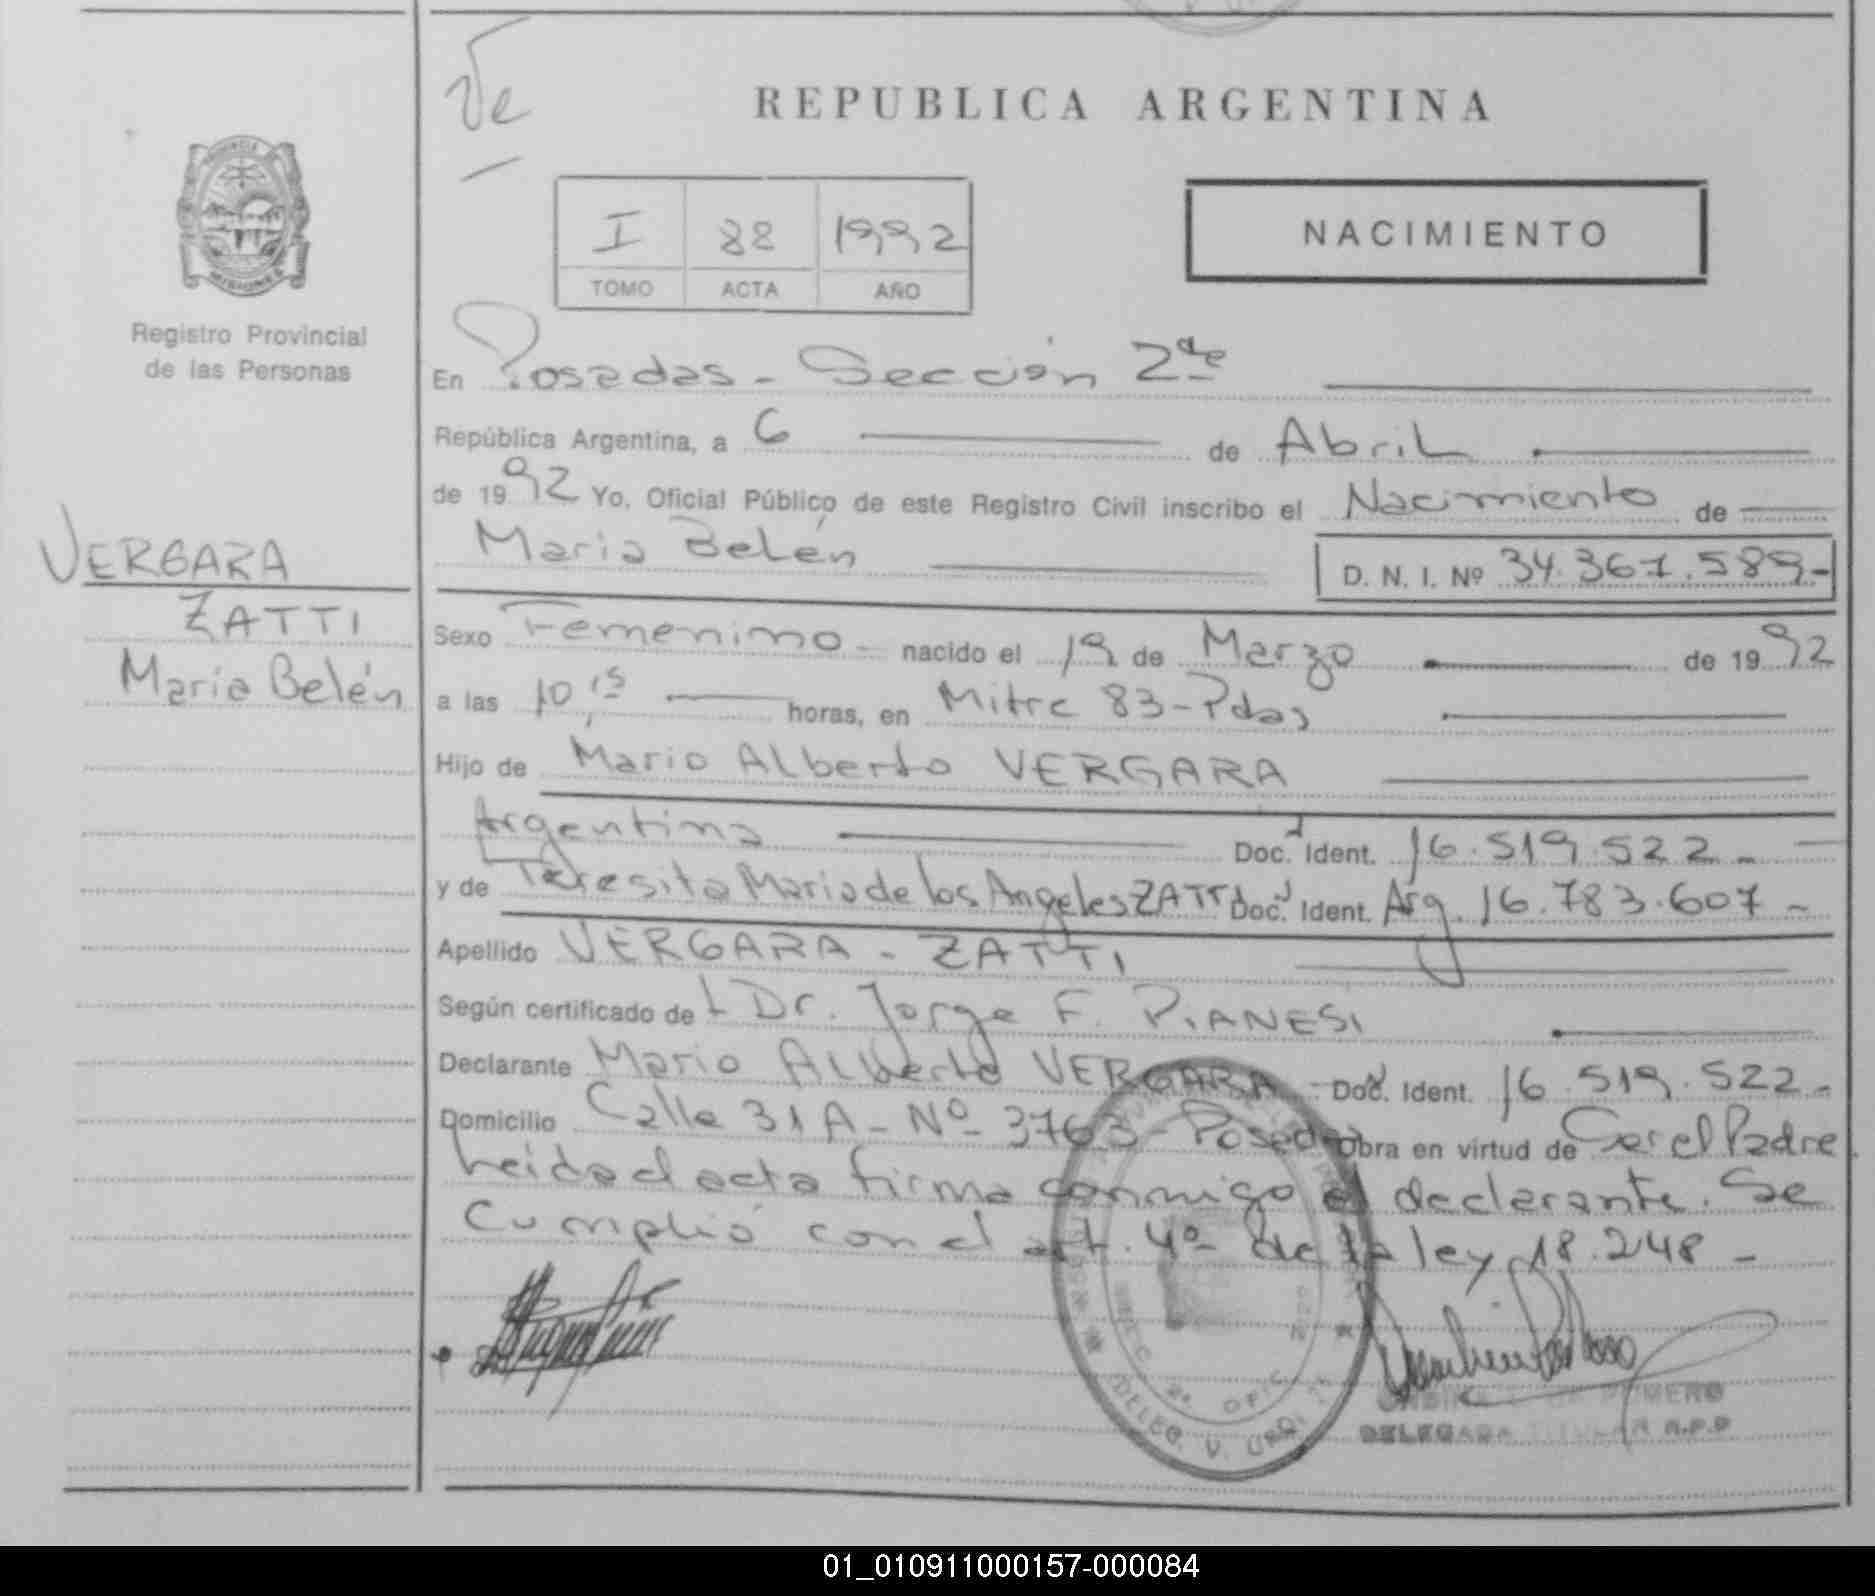 Ve
REPUBLICA ARGENTINA
I 88 1992
TOMO ACTA AÑO
NACIMIENTO
Registro Provincial
de las Personas
En Posadas - Sección 2da
República Argentina, a 6 de Abril
de 1992 Yo, Oficial Público de este Registro Civil inscribo el Nacimiento de
María Belén D. N. I. Nº 34.367.589-
VERGARA
ZATTI
María Belén
Sexo Femenino - nacido el 19 de Marzo de 1992
a las 10,15 horas, en Mitre 83 - Pdas
Hijo de Mario Alberto VERGARA
Argentina Doc. Ident. 16.519.522 -
y de Teresita María de los Angeles ZATTI Doc. Ident. Arg. 16.783.607 -
Apellido VERGARA - ZATTI
Según certificado del Dr. Jorge F. PIANESI
Declarante Mario Alberto VERGARA - Doc. Ident. 16.519.522 -
Domicilio Calle 31 A - Nº 3763 - Posadas Obra en virtud de Ser el Padre
Leída el acta firma conmigo el declarante. Se
Cumplió con el art. 4º de la ley 18.248 -
SECC. 2ª OFIC.
DELEG. V. URQ.
DELEGADA TITULAR R.P.P
01_010911000157-000084